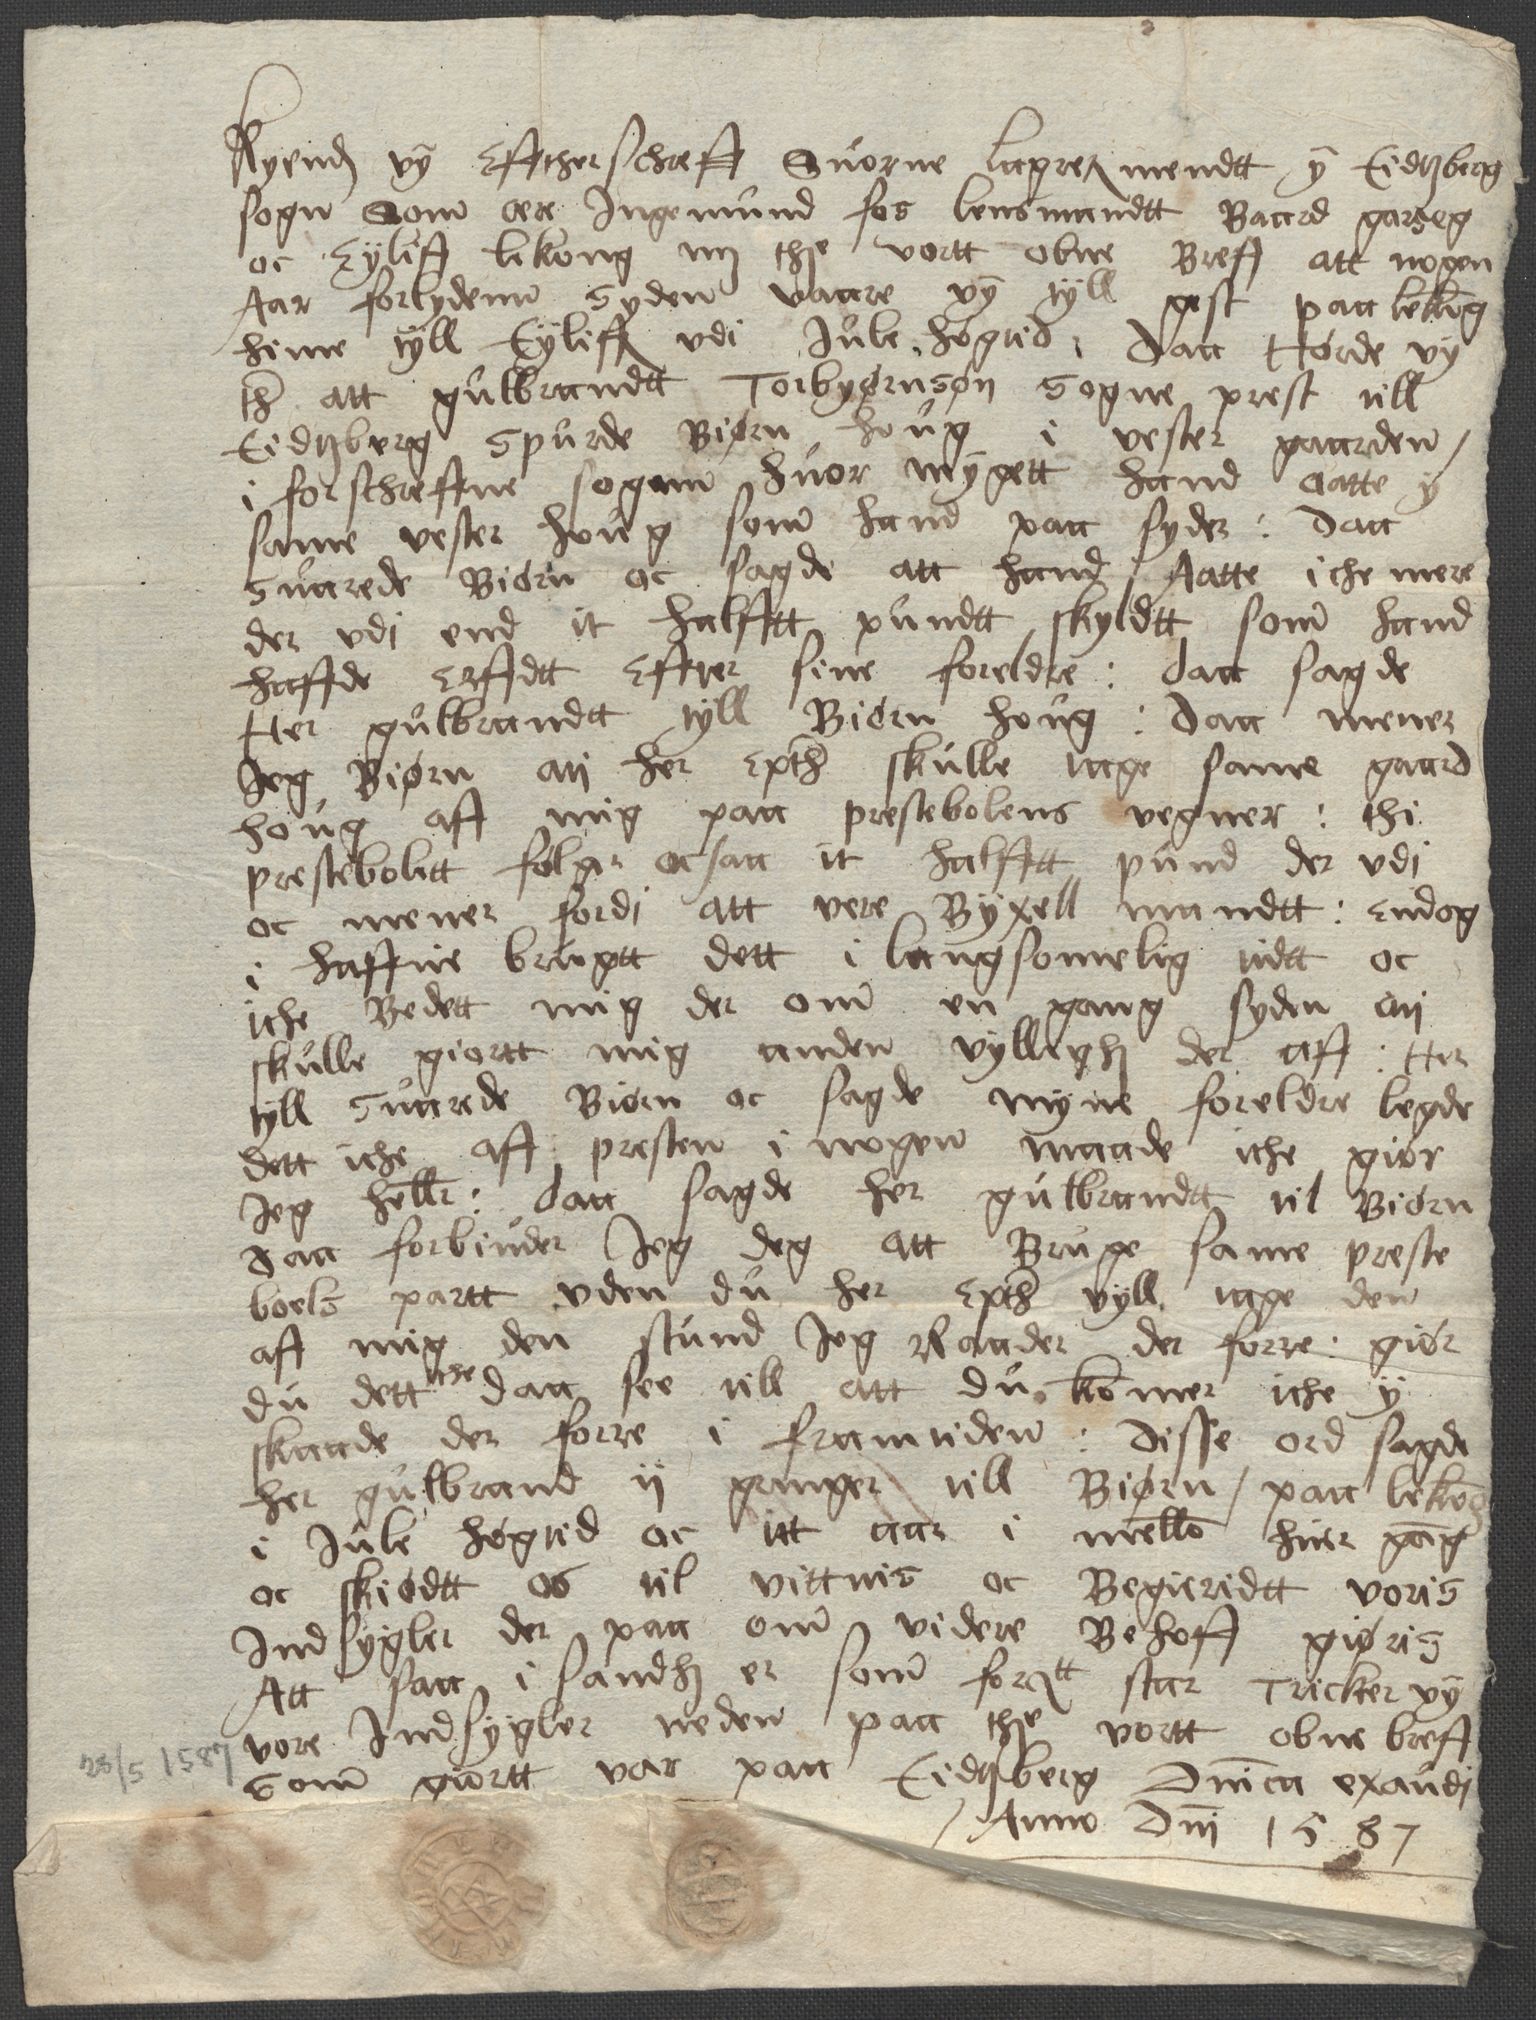 Kyendis vÿ Effther schreff Suorne lagretz mendtt ÿ Eidtzberg
sogn Som ere Ingemund fos lensmandtt Baard garseg
oc Eÿliff lekong m; thꝫ vortt obne Breff att nogen
Aar forlydenn syden vaare vÿ tÿll gest paa lekong
hime tÿll Eÿliff vdi Jule høgtid: Daa Hørde vÿ
th att gulbrandtt Torbyørnsøn sogne prest till
Eidtzberg spurde Biørn houg i vester gaarden
i forschreffne sogenn huor mÿgett hand aatte ÿ
same vester houg som hand paa syder: Daa
suarede Biørn oc sagde att hand Aatte iche mere
der vdi end it halfftt pundtt skyldtt som hand
haffde Erffdtt Effter sine foreldre: daa sagde
Her gulbrandtt tÿll Biørn houg: Daa mener
Jeg Biørn atj her epther skulle tage same gaard
houg aff mig paa prestebolens vegner: thi
prestebolitt følger ocsaa it halfftt pund der vdi
oc mener fordi att vere Bÿxell mandtt: Endog
i haffue brugtt dett i langsomelig tidtt oc
iche Bedett mig der om en gang syden atj
skulle giortt mig anden vÿlleghed der aff: Her
tÿll suarede Biørn oc sagde mÿne foreldre legde
dett iche aff presten i nogen maade iche giør
Jeg heller: daa sagde her gulbrandtt til Biørn
Daa forbiuder Jeg deg att Bruge same preste
boels partt vden du her epther vÿll tage den
aff mig den stund Jeg Raader der forre: giør
du dett iche daa see till att du komer iche ÿ
skaade der forre i framtiden: Disse ord sagde
her gulbrand ij ganger till Biørn paa lekong
i Jule høgtid oc itt aar i mellom huer gang
oc skiødtt os til vittnis oc Begieridtt voris
Indsÿgler der paa om videre Behoff giøris
Att saa i sandhed er som forschreffuitt staar Tricker vÿ
vore Indsÿgler neden paa thꝫ vortt obne breff
som giørtt var paa Eidtzberg Dnica exaudi
Anno Dni 1587
28/5 1587